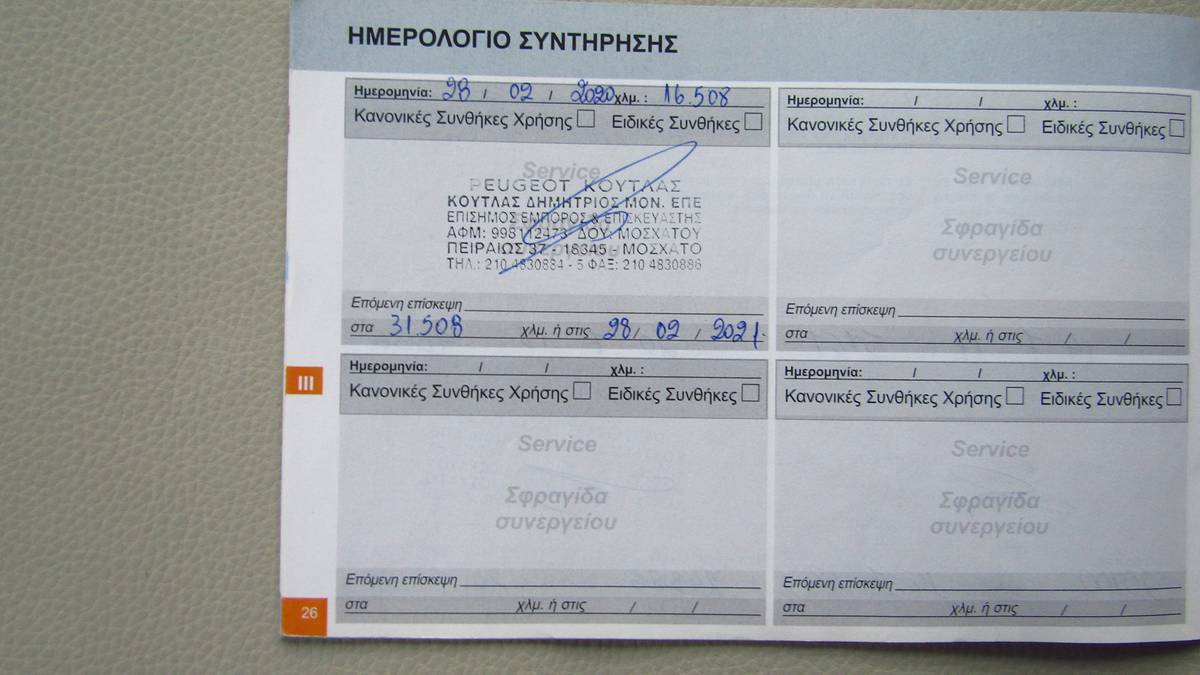 ΗΜΕΡΟΛΟΓΙΟ ΣΥΝΤΗΡΗΣΗΣ
Ημερομηνία: 28 / 02 / 2020 χλμ. : 16.508
Κανονικές Συνθήκες Χρήσης Ειδικές Συνθήκες
Service
PEUGEOT ΚΟΥΤΛΑΣ
ΚΟΥΤΛΑΣ ΔΗΜΗΤΡΙΟΣ ΜΟΝ. ΕΠΕ
ΕΠΙΣΗΜΟΣ ΕΜΠΟΡΟΣ & ΕΠΙΣΚΕΥΑΣΤΗΣ
ΑΦΜ: 998112473 ΔΟΥ: ΜΟΣΧΑΤΟΥ
ΠΕΙΡΑΙΩΣ 37 - 18345 ΜΟΣΧΑΤΟ
ΤΗΛ.: 210 4830884 - 5 ΦΑΞ: 210 4830886
Επόμενη επίσκεψη
στα 31.508 χλμ. ή στις 28 / 02 / 2021
Ημερομηνία: / / χλμ. :
Κανονικές Συνθήκες Χρήσης Ειδικές Συνθήκες
Service
Σφραγίδα
συνεργείου
Επόμενη επίσκεψη
στα χλμ. ή στις / /
Ημερομηνία: / / χλμ. :
Κανονικές Συνθήκες Χρήσης Ειδικές Συνθήκες
Service
Σφραγίδα
συνεργείου
Επόμενη επίσκεψη
στα χλμ. ή στις / /
Ημερομηνία: / / χλμ. :
Κανονικές Συνθήκες Χρήσης Ειδικές Συνθήκες
Service
Σφραγίδα
συνεργείου
Επόμενη επίσκεψη
στα χλμ. ή στις / /
III
26